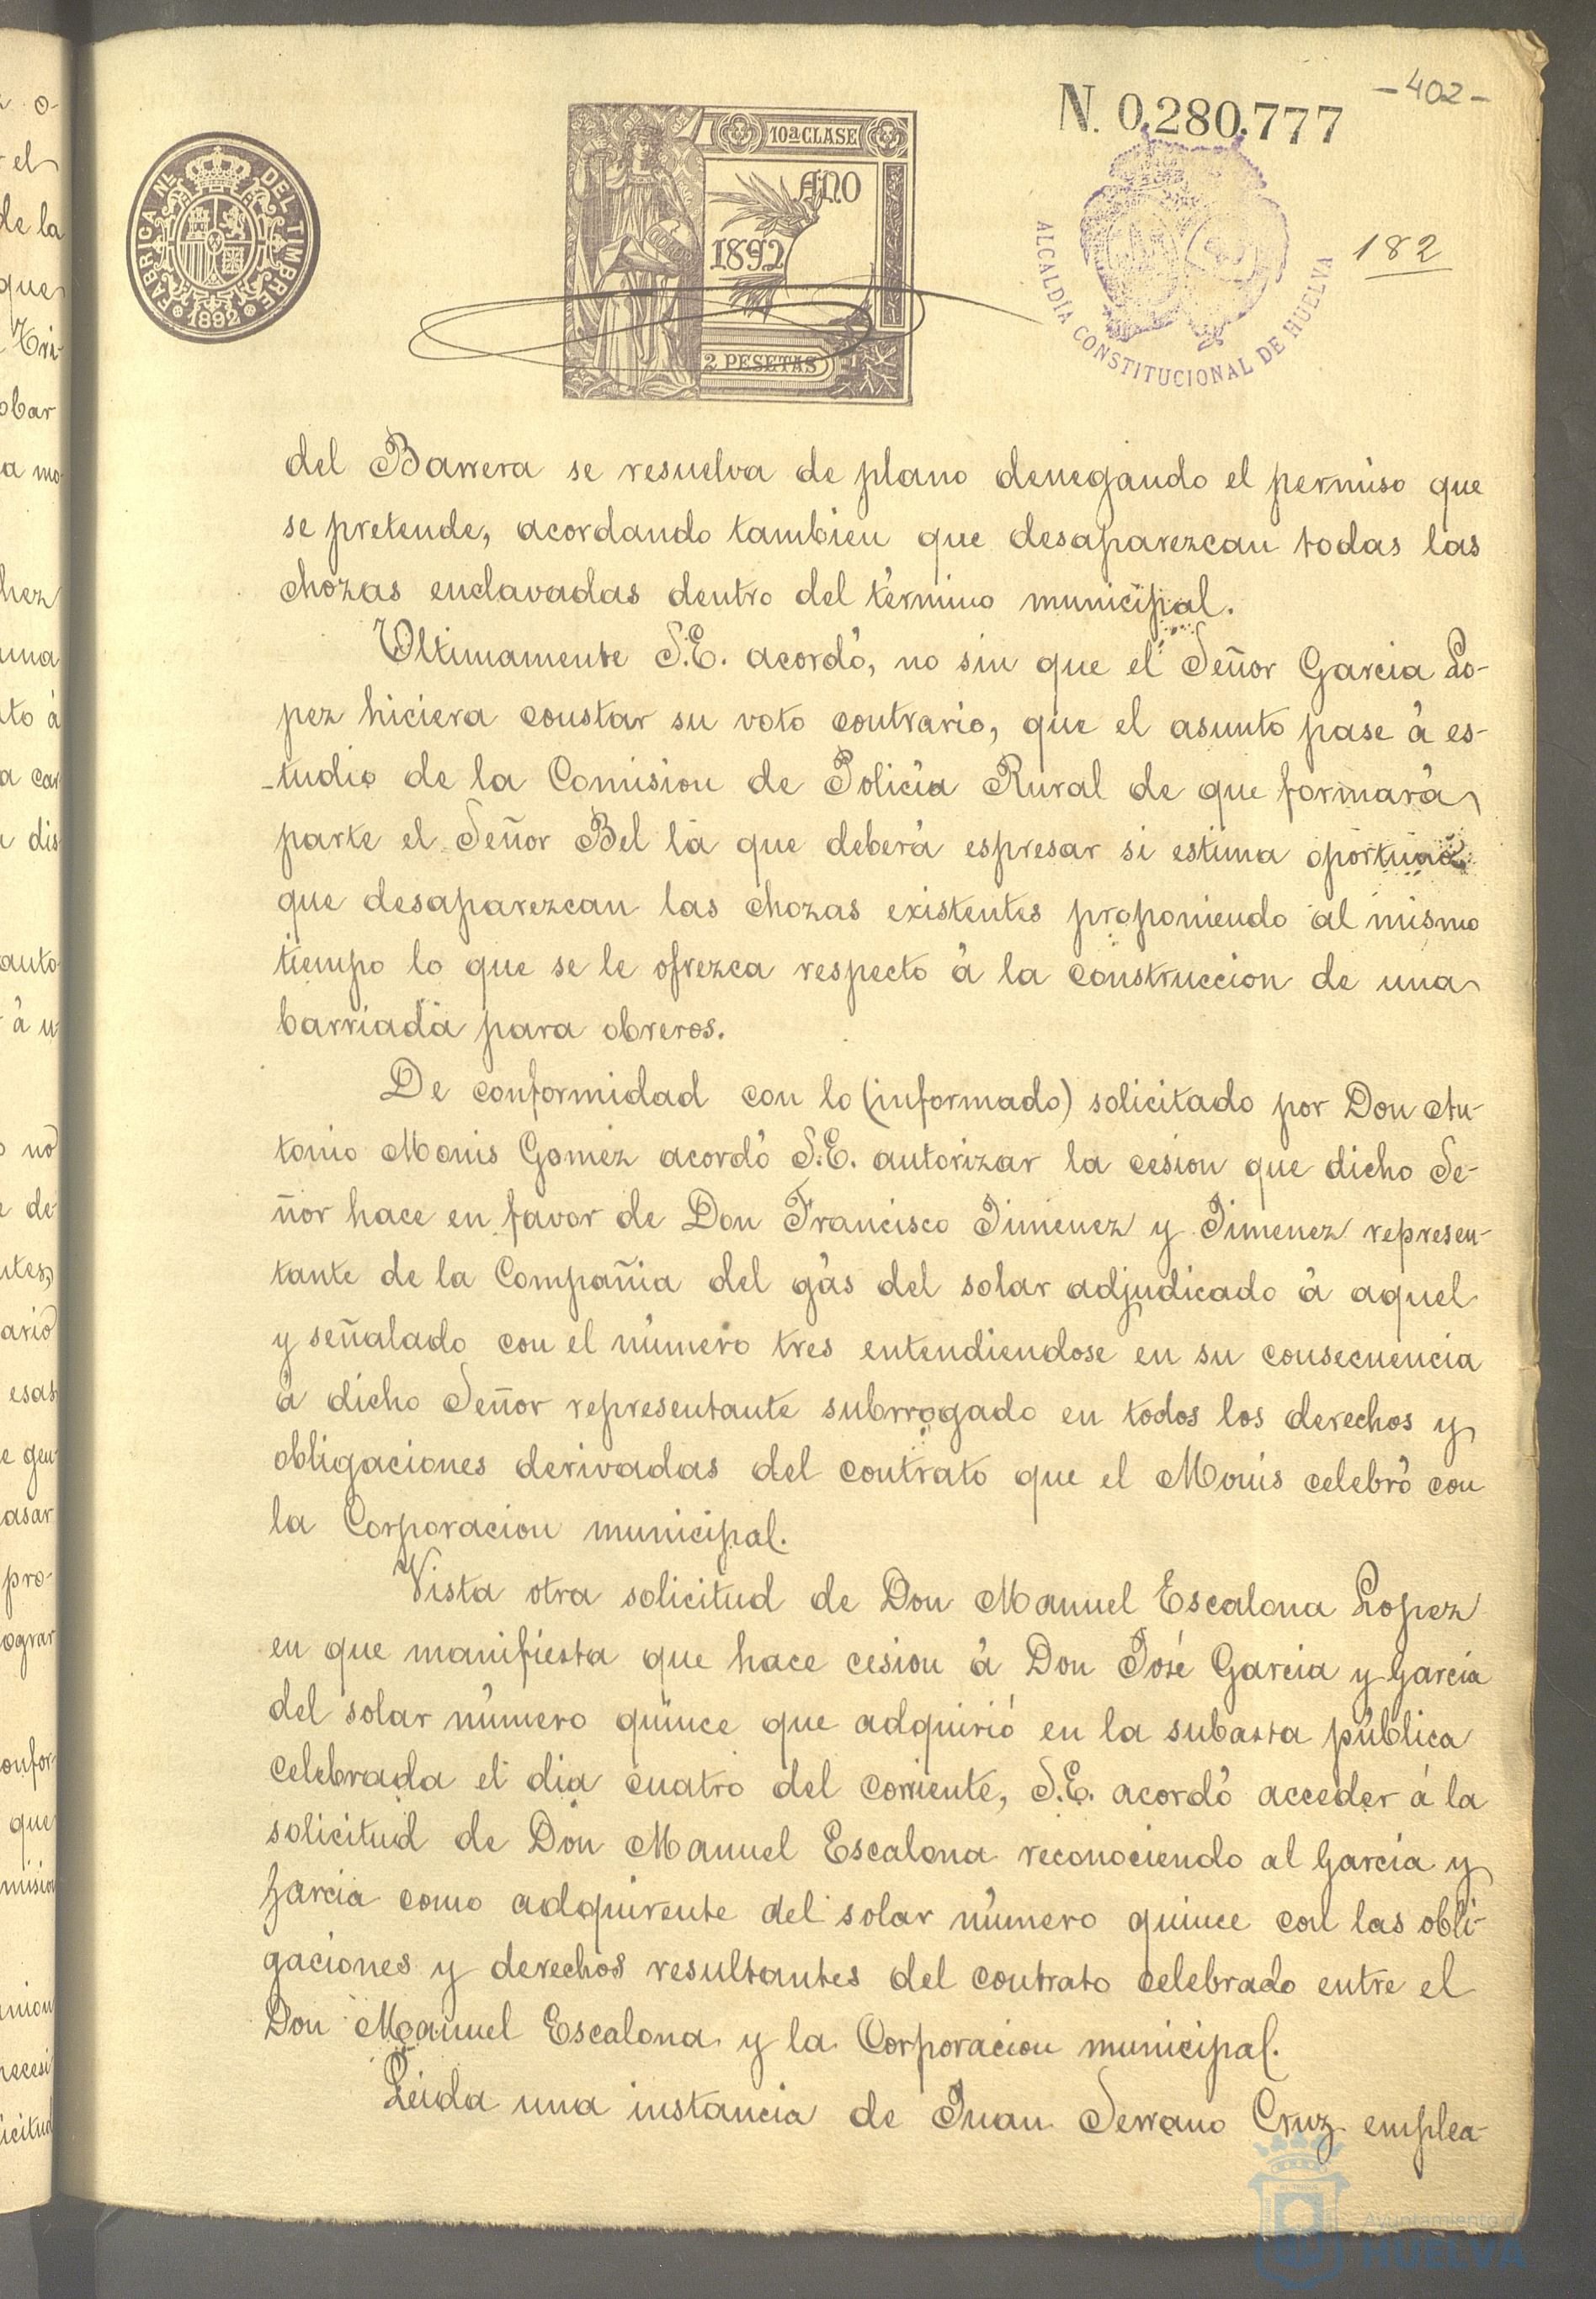 -402-
N. 0,280,777
182
FÁBRICA NL. DEL TIMBRE
1892
10ª CLASE
AÑO
1892
2 PESETAS
ALCALDÍA CONSTITUCIONAL DE HUELVA
del Barrera se resuelva de plano denegando el permiso que
se pretende, acordando tambien que desaparezcan todas las
chozas enclavadas dentro del término municipal.
Ultimamente S.E. acordó, no sin que el Señor Garcia Lo-
pez hiciera constar su voto contrario, que el asunto pase á es-
-tudio de la Comision de Policía Rural de que formará
parte el Señor Bel la que deberá espresar si estima oportuno
que desaparezcan las chozas existentes proponiendo al mismo
tiempo lo que se le ofrezca respecto á la construccion de una
barriada para obreros.
De conformidad con lo (informado) solicitado por Don An-
tonio Monis Gomez acordó S.E. autorizar la cesion que dicho Se-
ñor hace en favor de Don Francisco Jimenez y Jimenez represen-
tante de la Compañia del gás del solar adjudicado á aquel
y señalado con el número tres entendiendose en su consecuencia
á dicho Señor representante subrrogado en todos los derechos y
obligaciones derivadas del contrato que el Monis celebró con
la Corporacion municipal.
Vista otra solicitud de Don Manuel Escalona Lopez
en que manifiesta que hace cesion á Don José Garcia y Garcia
del solar número quince que adquirió en la subasta pública
celebrada el dia cuatro del corriente, S.E. acordó acceder á la
solicitud de Don Manuel Escalona reconociendo al Garcia y
Garcia como adquirente del solar número quince con las obli-
gaciones y derechos resultantes del contrato celebrado entre el
Don Manuel Escalona y la Corporacion municipal.
Leida una instancia de Juan Serrano Cruz emplea-
Ayuntamiento de
HUELVA